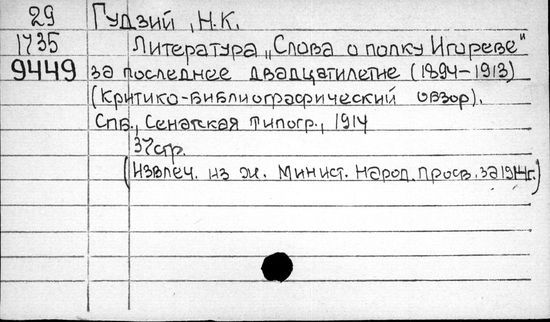 29 Гудзий, Н.К.
1735 Литература „Слова о полку Игореве"
9449 за последнее двадцатилетие (1894–1913)
(Критико-библиографический обзор).
Спб., Сенатская типогр., 1914
37стр.
(Извлеч. из ж. Минист. Народ. Просв. за 1914г.)